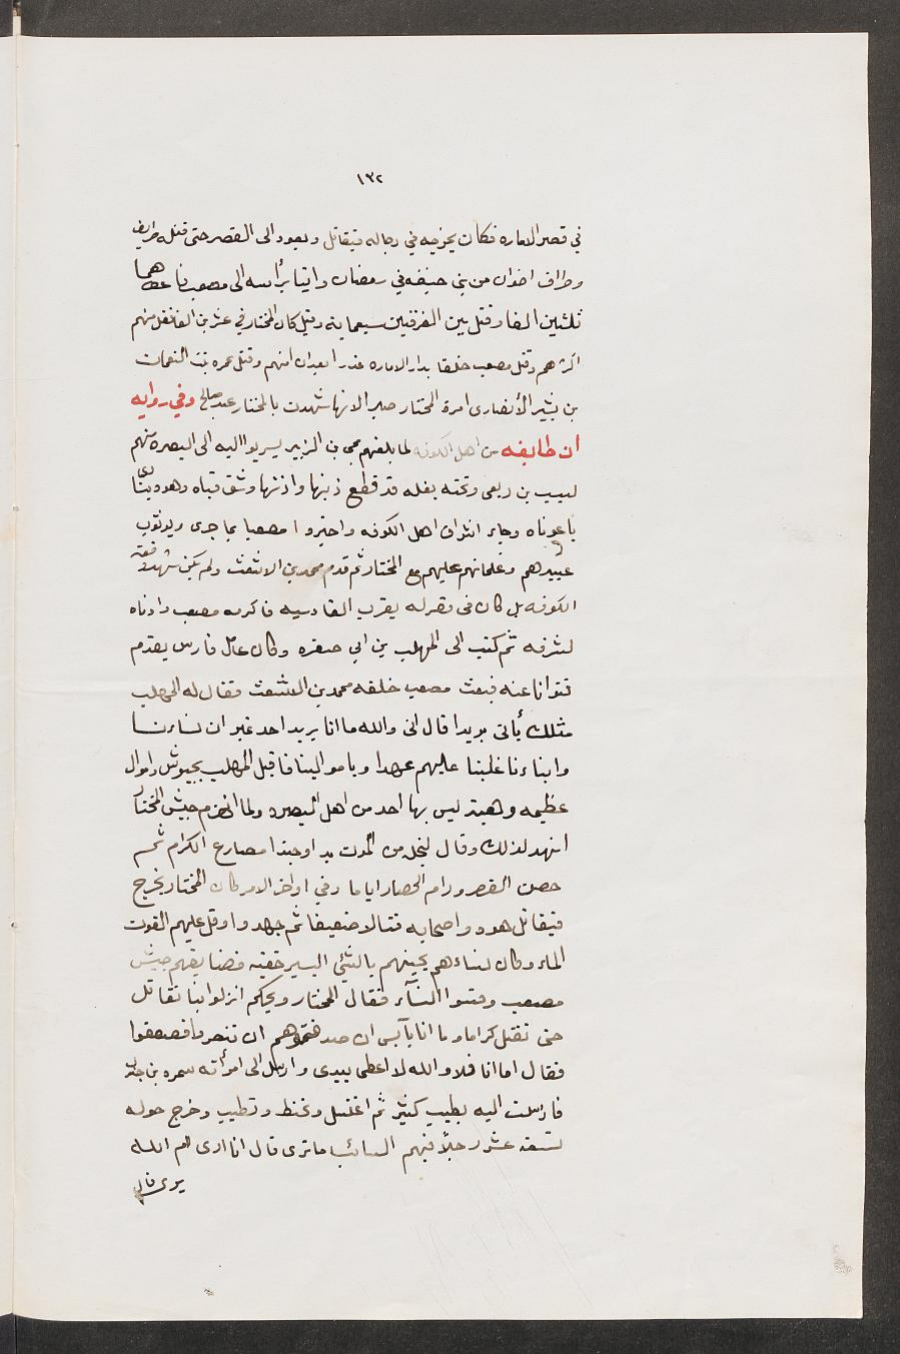 ١٣٢
في قصر الاماره فكان يخرج في رجاله فيقاتل ويعود الى القصر حتى قتله طريف
وطراف اخوان من بني حنيفه في رمضان واتيا برأسه الى مصعب فاعطاهما
ثلثين الفا وقتل بين الفرقتين سبعماية وقيل كان المختار في عشرين الفا فقتل منهم
اكثرهم وقتل مصعب خلقا بدار الاماره غدرا بعد ان امنهم وقتل عمره بنت النعمان
بن بشير الأنصارى امرة المختار صبرا لانها شهدت بالمختار عبد صالح وفي روايه
ان طايفه من اهل الكوفه لما بلغهم مجي بن الزبير تسربوا اليه الى البصره منهم
بن ربعى وتحته بغله قد قطع ذنبها واذنها وشق قباه وهو ينادى
ياغوثاه وجاء اشراف اهل الكوفه واخبروا مصعبا بما جرى وبوثوب
عبيدهم وغلمانهم عليهم مع المختار ثم قدم محمد بن الاشعث ولم يكن شهد وقعة
الكوفه بل كان فى قصر له بقرب القادسيه فاكرمه مصعب وادناه
لشرفه ثم كتب الى المهلب بن ابي صفره وكان عامل فارس يقدم
فتوانا عنه فبعث مصعب خلفه محمد بن الاشعث فقال له المهلب
مثلك يأتى بريدا قال انى والله ما انا بريد احد غير ان نساءنا
وابناءنا غلبنا عليهم عبدا وناموالينا فاقبل المهلب بجيوش واموال
عظيمه وهيبة ليس بها احد من اهل البصره ولما انهزم جيش المختار
انهد لذلك وقال لنجله من الموت بد اوحبذا مصارع الكرام ثم
حصن القصر ورام الحصار اياما وفي اواخر الامر كان المختار يخرج
فيقاتل هو واصحابه قتالا ضعيفا ثم جهدوا وقل عليهم القوت
الماء وكان نساءهم يجينهم بالشئ اليسير خفيه فضايقهم جيش
مصعب وفتشوا النسآء فقال المختار ويحكم انزلوا بنا نقاتل
حتى نقتل كراما وما انا بآيس ان صدقتموهم ان تنصروا فضعفوا
فقال اما انا فلا والله لا اعطى بيدى وارسل الى امرأته سمره بن جندب
فارسلت اليه بطيب كثير ثم اغتسل وتحنط وتطيب وخرج حوله
تسعة عشر رجلا فيهم السائب ما ترى قال انا ارى ام الله
يرى قال